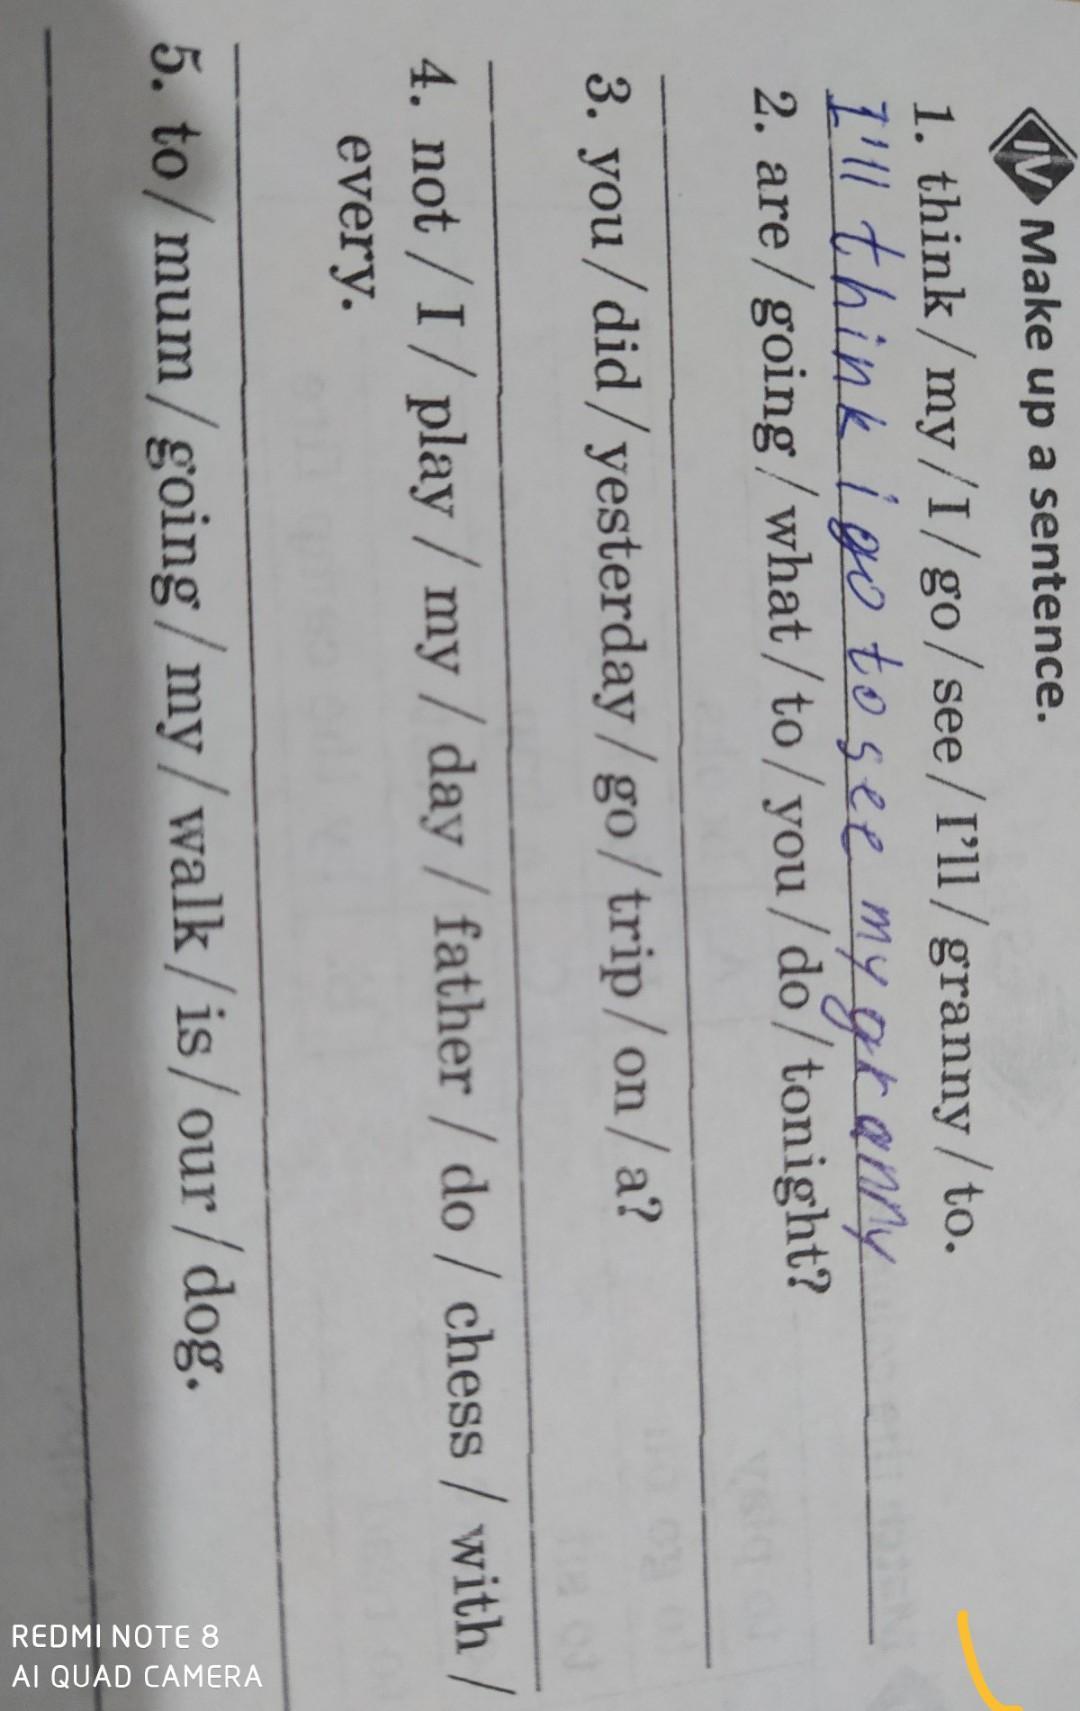 IV Make up a sentence.
1. think / my / I / go / see / I'll / granny / to.
I'll think i go to see my granny
2. are / going / what / to / you / do / tonight?
3. you / did / yesterday / go / trip / on / a?
4. not / I / play / my / day / father / do / chess / with /
every.
5. to / mum / going / my / walk / is / our / dog.
REDMI NOTE 8
AI QUAD CAMERA